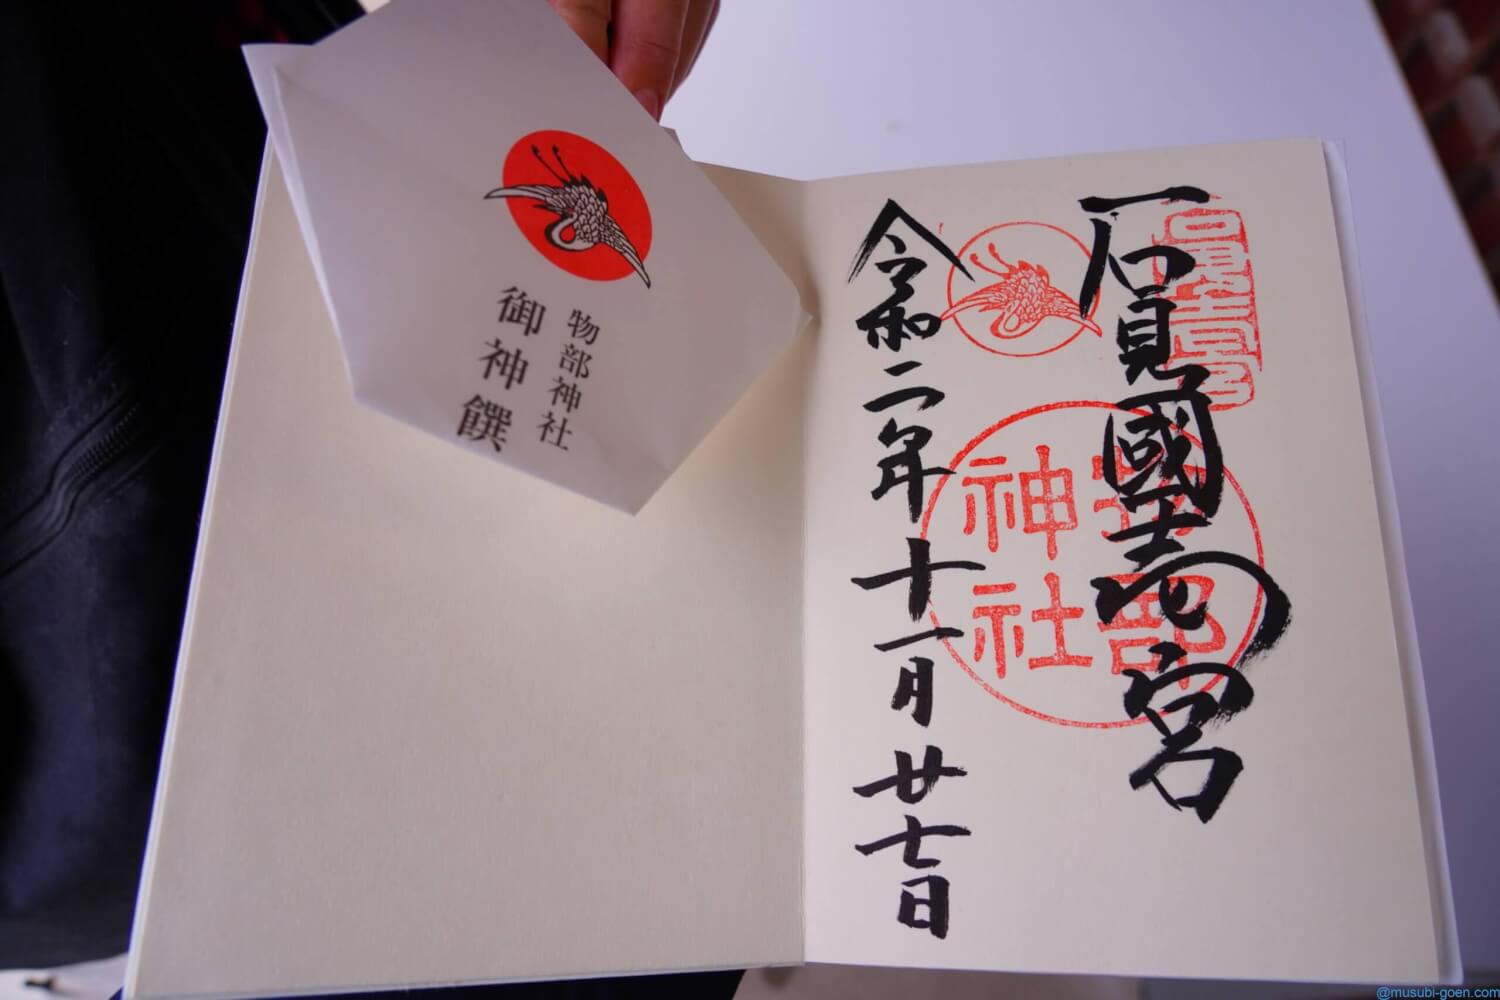 石見國一宮
令和二年十一月廿七日
物部
神社
石見國一宮
物部神社
御神饌
@musubi-goen.com